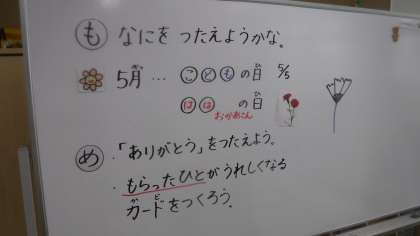 も なにを つたえようかな。
5月 … こどもの日 5/5
がつ
ひ
ははの日
ひ
おかあさん
め ・「ありがとう」をつたえよう。
・もらったひとがうれしくなる
カードをつくろう。